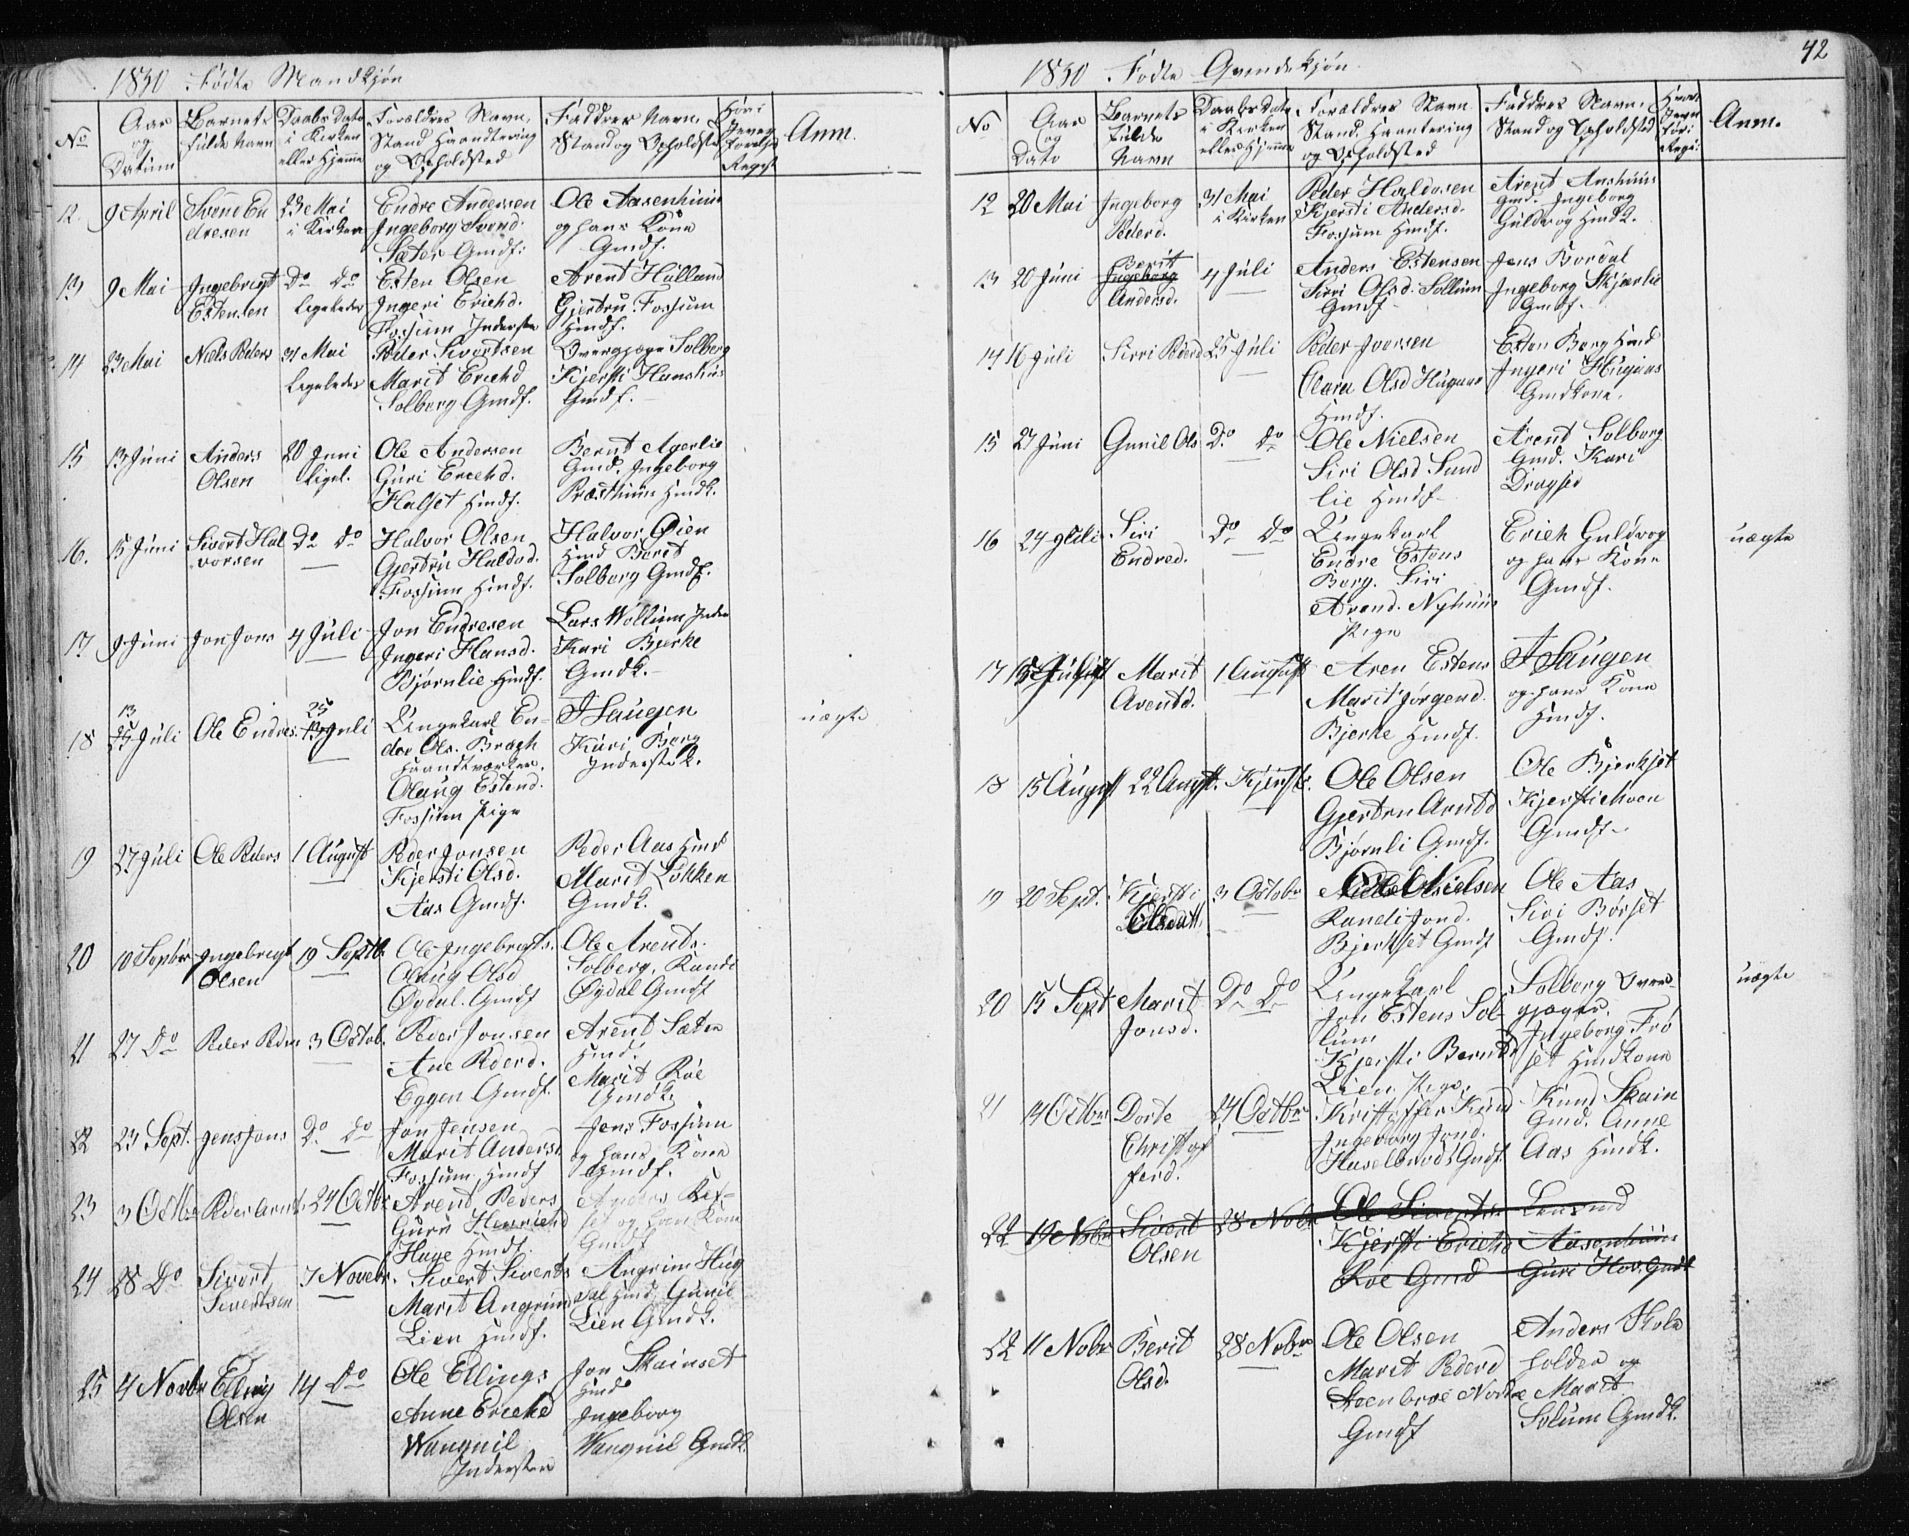 1830 Fødte Mandkjøn
No
Aar og Datum
Barnets fulde Navn
Daabs Dato i Kirken eller Hjemme
Forældres Navn, Stand Haandtering og Opholdsted
Faddres Navn, Stand og Opholdsted
Anm.
12. 9 April Svend Endresen 23 Mai i Kirken
Endre Andersen Ingeborg Svend. Sæter Gmdf.
Ole Aasenhuus og hans Kone Gmdf.
13 9 Mai Ingebrigt Estensen Do Do Ligeledes
Esten Olsen Ingeri Erichd. Fossum Inderste
Arent Halland Gjertru Fossum Hmdf.
14 23 Mai Niels Peders 31 Mai Ligeledes
Peder Sivertsen Marit Erichd Solberg Gmdf.
Overgjæger Solberg Kjersti Hanshus Gmdf.
15 13 Juni Anders Olsen 20 Juni Ligel.
Ole Andersen Guri Erichd. Halset Hmdf.
Bernt Agerlie Gmd. Ingeborg Præsthuus Hmdk.
16. 15 Juni Sivert Halvorsen Do Do
Halvor Olsen Gjertru Haldod. Fossum Hmdf.
Halvor Øien Hmd Berit Solberg Gmdf.
17 9 Juni Jon Jons 4 Juli
Jon Endresen Ingeri Hansd. Bjørnlie Hmdf.
Lars Wollum Inder Kari Bjerke Gmdk.
18 13 25 Juli Ole Endres 25 13 Juli
Ungekarl Endre Ols. Bragh Haandtværker. Olaug Estend. Fossum Pige
J Haugen Kari Berg Inderstek.
uægte
19 27 Juli Ole Peders 1 August
Peder Jonsen Kjersti Olsd. Aas Gmdf.
Peder Aas Hmd Marit Løkken Gmdk.
20 10 Septbr Ingebrigt Olsen 19 Septb.
Ole Ingebrigts. Olaug Olsd Øydal. Gmdf
Ole Arents. Solberg, Randi Øydal Gmdf
21 27 Do Peder Peders 3 Octob.
Peder Jonsen Ane Pederd. Eggen Gmdf.
Arent Sæter Hmd. Marit Roe Gmdk.
22 23 Sept. Jens Jons Do Do
Jon Jensen Marit Andersd. Fossum Hmdf
Jens Fossum og hans Kone Gmdf.
23 3 Octbr Peder Arents 24 Octbr
Arent Peders Guru Henrichd Hage Hmdf.
Anders Refset og hans Kone Gmdf
24 28 Do Sivert Sivertsen 7 Novbr.
Sivert Siverts Marit Angrimsd Lien Hmdf.
Angrim Hugdal Hmd, Gunil Lien Gmdk.
25 4 Novbr Elling Olsen 14 Do
Ole Ellings Anne Erichd Wangnil Inderster
Jon Skainset Hmd Ingeborg Wangnil Gmdk.
42
1830 Fødte Qvindekjøn.
No
Aar og Dato
Barnets fulde Navn
Daabs Dato i Kirken eller Hjemme
Forældres Navn Stand, Haantering og Opholdsted
Faddres Navn, Stand og Opholdsted
Anm.
12 20 Mai Ingeborg Pederd. 31 Mai i Kirken
Peder Haldosen Kjersti Andersd. Fossum Hmdf.
Arent Aashuus Gmd. Ingeborg Guldvog Hmdk.
13 20 Juni Berit Ingeborg Andersd. 4 Juli
Anders Estensen Sirri Olsd. Sollum Gmdf
Jens Bordal Ingeborg Skjærlie Gmdf.
14 16 Juli Sirri Pederd 25 Juli
Peder Joersen Clara Olsd Hugaas Hmdf.
Esten Borg Hmd Ingeri Hugaas Gmdkone.
15 27 Juni Gunil Ols Do Do
Ole Nielsen Siri Olsd. Sundlie Hmdf
Arent Solberg Gmd. Kari Dragset
16 24 Juli Siri Endred. Do Do
Ungekarl Endre Estens Borg. Siri Arend. Nyhuus Pige
Erich Guldvog og hans Kone Gmdf.
uægte
17 Marit Arentd. 1 August
Aren Estens Marit Jørgend. Bjerke Hmdf.
J Haugen og hans Kone Hmdf.
18 15 August 22 Augst. Kjersti.
Ole Olsen Gjertru Arntd Bjørnli Gmdf.
Ole Bjerkset Kjersti Hoen Gmdf.
19 20 Sept. Kjersti Olsdatt 3 Octobr
Randi Jond. Bjerkset Gmdf
Ole Aas Siri Børset Gmdf.
20 15 Sept Marit Jonsd. Do Do
Ungekarl Jon Estens Sollum Kjersti Berntd Lien Pige.
Solberg Overgjæger. Ingeborg Frøset Hmdkone
uægte
21 14 Octbr Dorte Christofferd. 24 Octbr
Kristoffer Knud Ingeborg Jond. Haselbrod Gmdf.
Knud Skain Gmd. Anne Aas Hmdk.
22 19 Nobr Sivert Olsen 28 Nobr
Ole Sivertsen Kjersti Erichd Roe Gmd
Lensmd Aasenhuus Guri Hov. Gmdk
22 11 Nobr Berit Olsd. 28 Nobr
Ole Olsen Marit Pederd Steenbroe Nordre Gmdf
Anders Skoleholder og Marit Solum Gmdk.